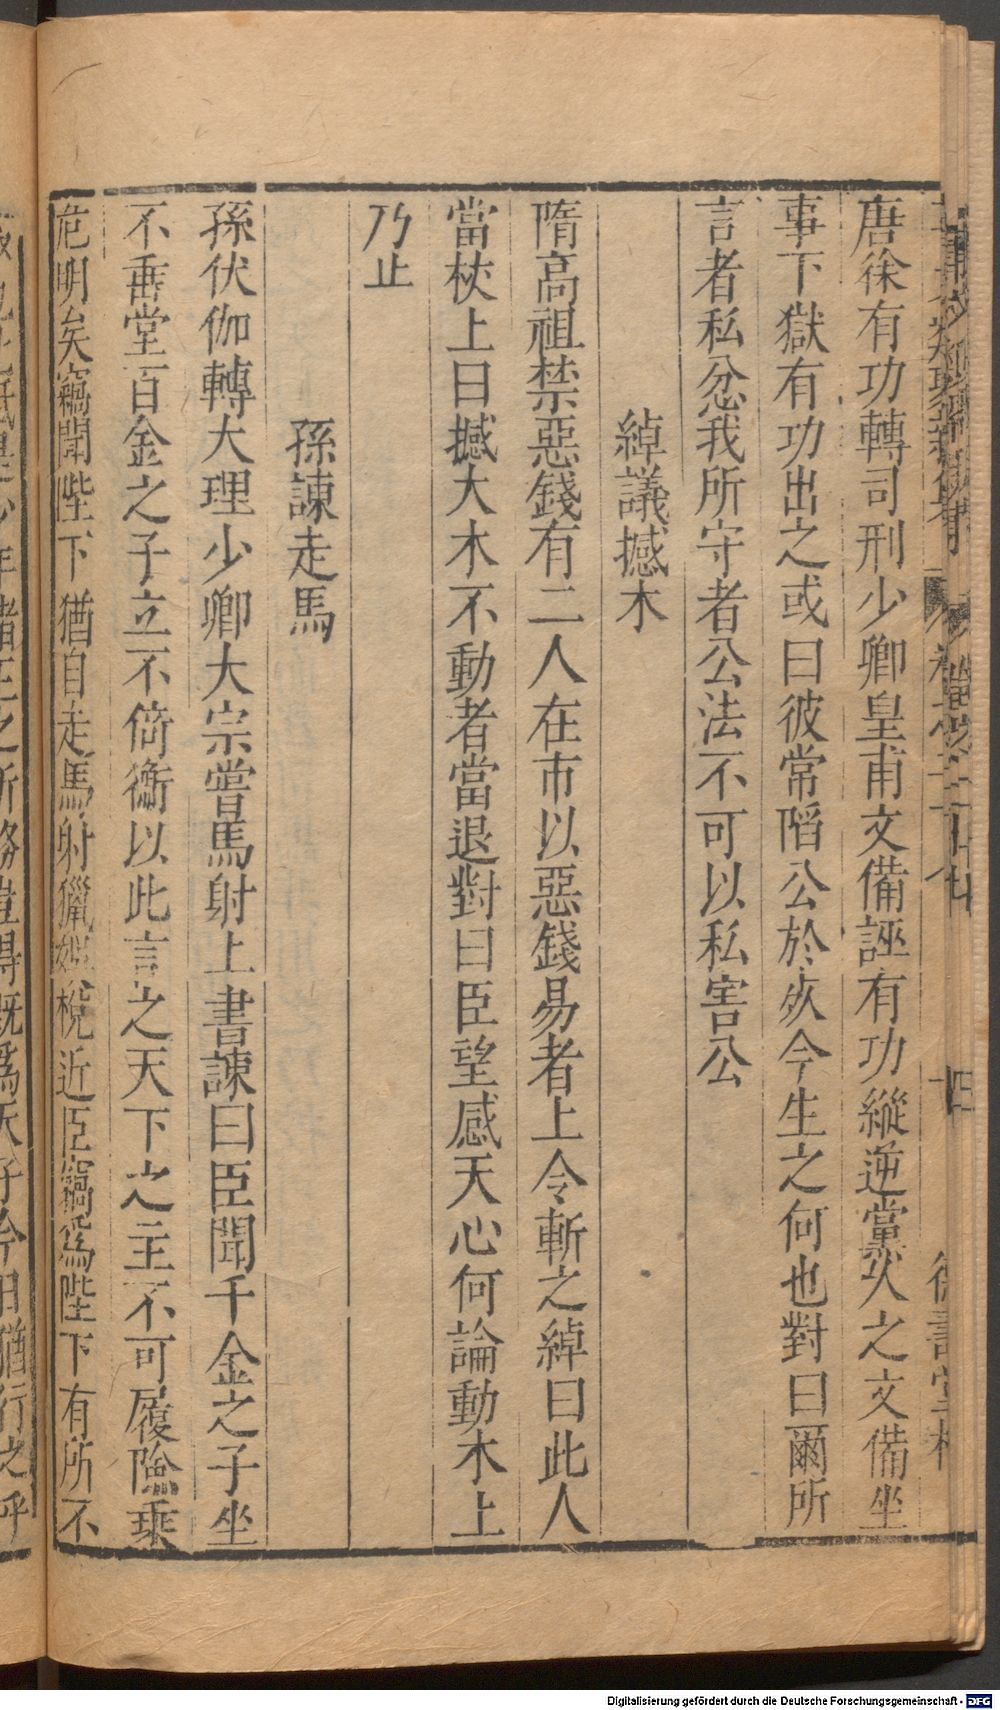 唐徐有功轉司刑少卿皇甫文備誣有功縱逆黨久之文備坐
事下獄有功出之或曰彼常陷公於死今生之何也對曰爾所
言者私忿我所守者公法不可以私害公
綽議撼木
隋高祖禁惡錢有二人在市以惡錢易者上令斬之綽曰此人
當杖上曰撼大木不動者當退對曰臣望感天心何論動木上
乃止
孫諫走馬
孫伏伽轉大理少卿大宗嘗馬射上書諫曰臣聞千金之子坐
不垂堂百金之子立不倚衡以此言之天下之主不可履險乘
危明矣竊聞陛下猶自走馬射獵娛悅近臣竊為陛下有所不
年諸王之所務豈得既為天子今日猶行之乎
Digitalisierung gefördert durch die Deutsche Forschungsgemeinschaft - DFG